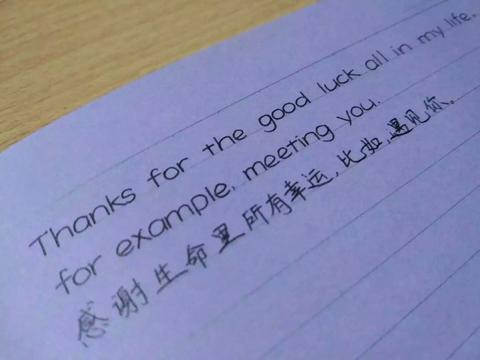 Thanks for the good luck all in my life.
for example, meeting you.
感谢生命里所有幸运，比如，遇见你。